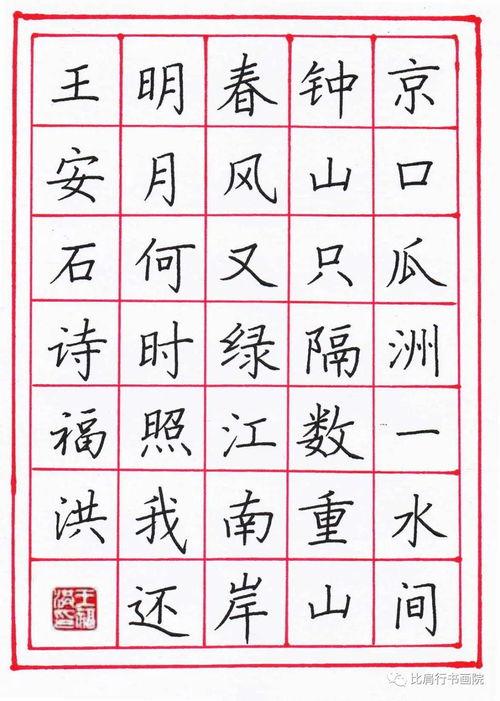 京口瓜洲一水间
钟山只隔数重山
春风又绿江南岸
明月何时照我还
王安石诗福洪
比肩行书画院